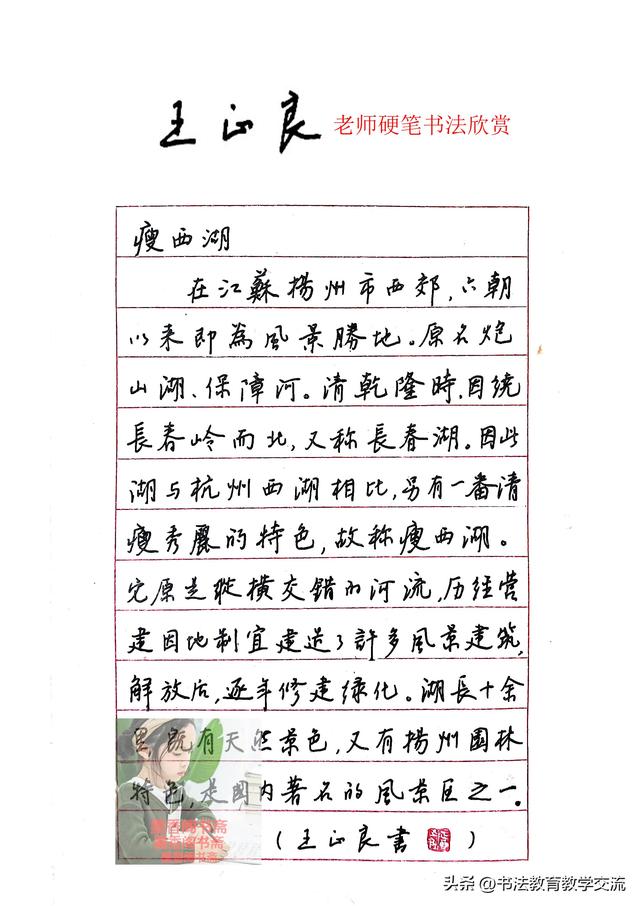 王正良 老师硬笔书法欣赏
瘦西湖
在江蘇揚州市西郊,六朝
以来即為風景勝地。原名炮
山湖、保障河。清乾隆時,因绕
長春岭而北,又称長春湖。因此
湖与杭州西湖相比,另有一番清
瘦秀麗的特色,故称瘦西湖。
它原是縱橫交錯的河流,历经营
建因地制宜建造了許多風景建筑,
解放后,逐年修建绿化。湖長十余
里,既有天然景色,又有揚州園林
特色,是國内著名的風景区之一。
(王正良書)
头条 @书法教育教学交流